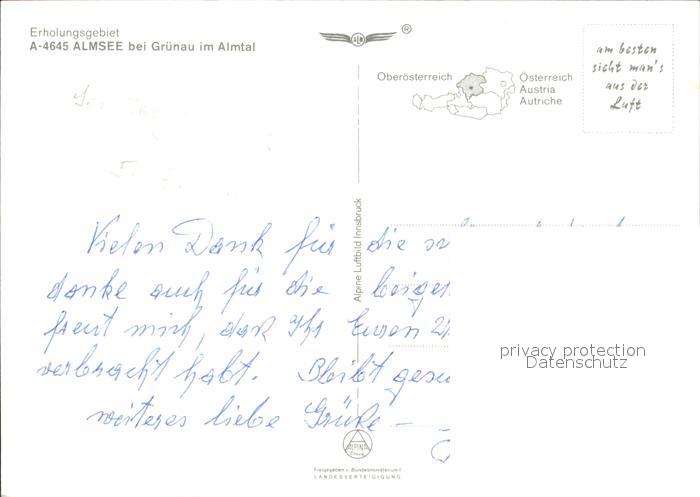 Erholungsgebiet
A-4645 ALMSEE bei Grünau im Almtal
ALM
®
Oberösterreich
Österreich
Austria
Autriche
am besten
sieht man's
aus der
Luft
Alpine Luftbild Innsbruck
Vielen Dank für die
danke auch für die beiges
freut mich, daß Ihr Euren
verbracht habt. Bleibt gesu
weiteres liebe Grüße —
privacy protection
Datenschutz
ALPINE
Freigegeben v. Bundesministerium f.
LANDESVERTEIDIGUNG